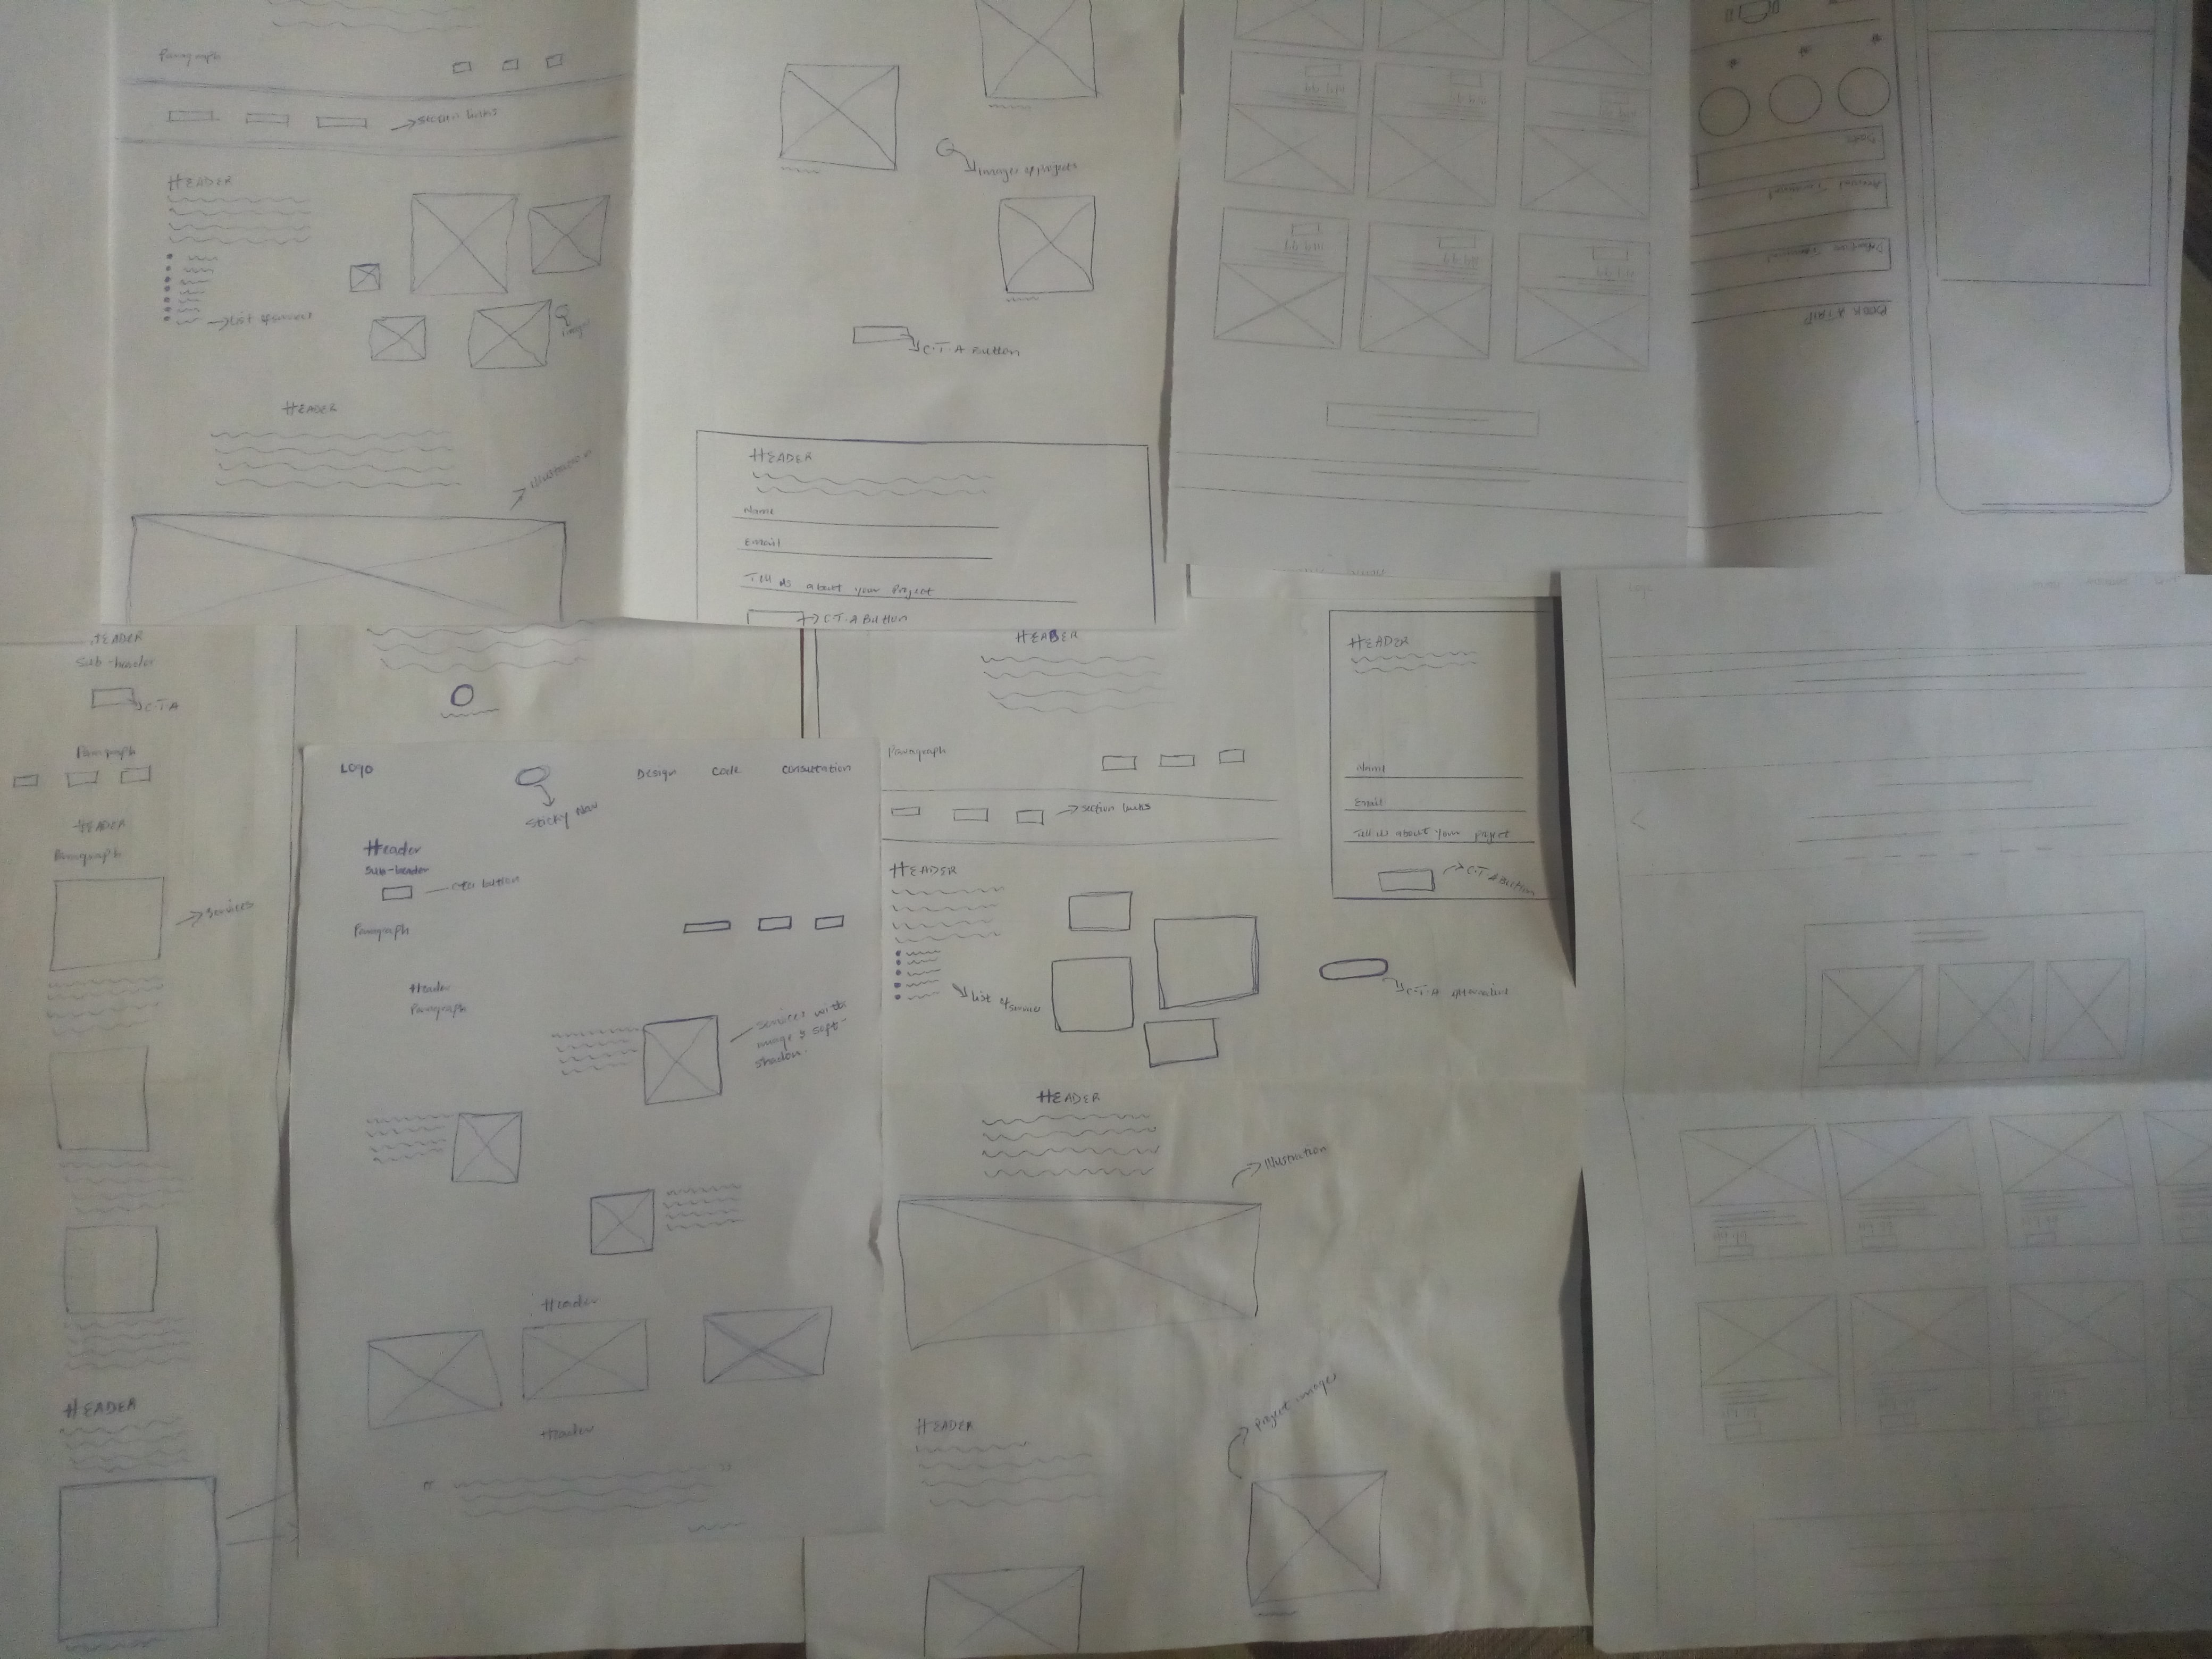 Paragraph
Section links
HEADER
List of services
Images
HEADER
Illustration
Images of projects
C.T.A Button
HEADER
Name
Email
Tell us about your Project
C.T.A Button
Arrival Terminal
BOOK A TRIP
HEADER
Sub-header
C.T.A
Paragraph
HEADER
Paragraph
Services
HEADER
Logo
Design
Code
Consultation
Sticky Nav
Header
Sub-header
cta button
Paragraph
Header
Paragraph
Services with
image & soft
shadow.
Header
Header
HEADER
Paragraph
Section links
HEADER
List of services
HEADER
Illustration
HEADER
Project images
HEADER
Name
Email
Tell us about your project
C.T.A Button
C.T.A alternative